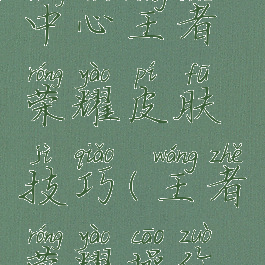 中心王者
róng yào pí fū
荣耀皮肤
jì qiǎo ( wáng zhě
技巧(王者
róng yào cāo zuò
荣耀操作